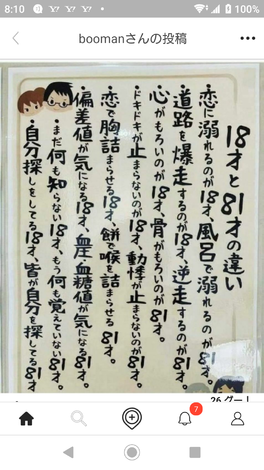 8:10
100%
boomanさんの投稿
18才と81才の違い
恋に溺れるのが18才、風呂で溺れるのが81才。
道路を爆走するのが18才、逆走するのが81才。
心がもろいのが18才、骨がもろいのが81才。
・ドキドキが止まらないのが18才、動悸が止まらないのが81才。
・恋で胸詰まらせる18才、餅で喉を詰まらせる81才。
・偏差値が気になる18才、血圧・血糖値が気になる81才。
・まだ何も知らない18才、もう何も覚えていない81才。
・自分探しをしてる18才、皆が自分を探してる81才。
26グー!
7